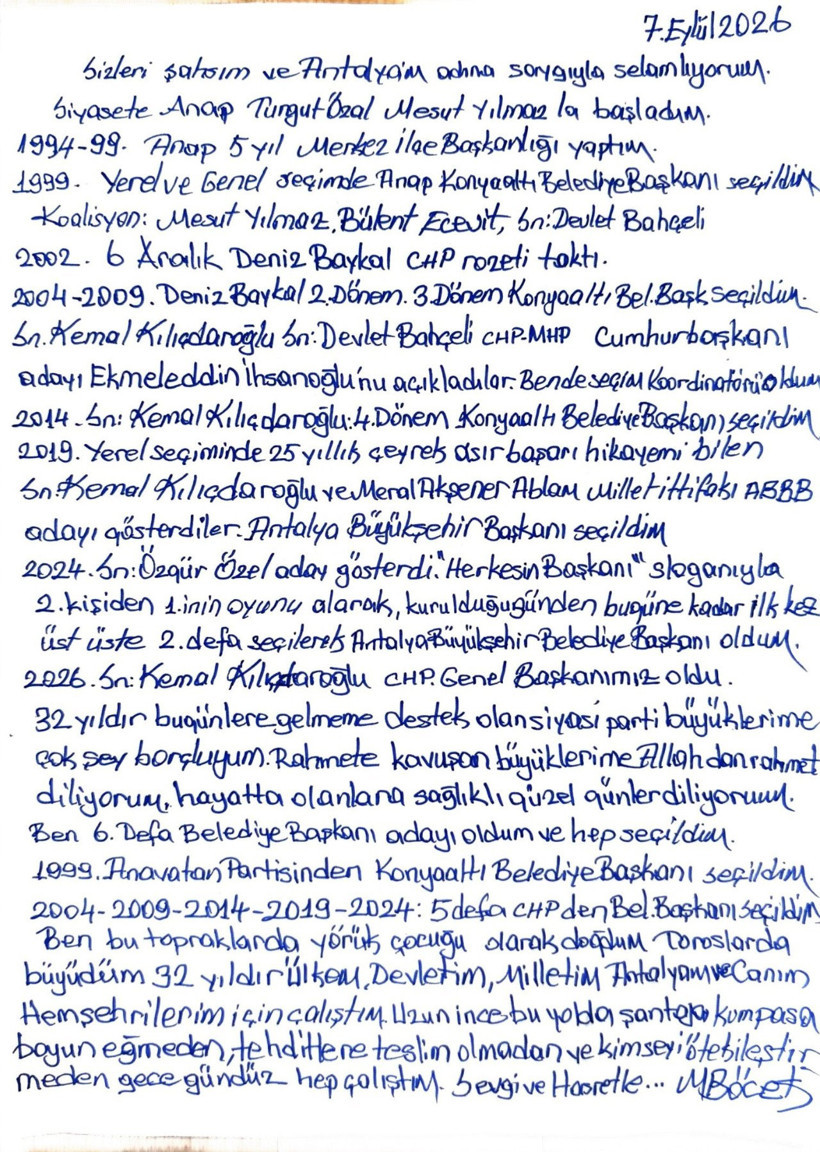 7.Eylül 2026
Sizleri şahsım ve Antalya'm adına saygıyla selamlıyorum.
Siyasete Anap Turgut Özal Mesut Yılmaz la başladım.
1994-99. Anap 5 yıl Merkez ilçe Başkanlığı yaptım.
1999. Yerel ve Genel seçimde Anap Konyaaltı Belediye Başkanı seçildim
Koalisyon: Mesut Yılmaz, Bülent Ecevit, Sn: Devlet Bahçeli
2002. 6 Aralık Deniz Baykal CHP rozeti taktı.
2004-2009. Deniz Baykal 2.Dönem. 3.Dönem Konyaaltı Bel.Başk seçildim.
Sn. Kemal Kılıçdaroğlu Sn: Devlet Bahçeli CHP-MHP Cumhurbaşkanı
adayı Ekmeleddin İhsanoğlu'nu açıkladılar. Bende seçim Koordinatörü oldum
2014. Sn: Kemal Kılıçdaroğlu: 4.Dönem Konyaaltı Belediye Başkanı seçildim
2019. Yerel seçiminde 25 yıllık çeyrek asır başarı hikayemi bilen
Sn: Kemal Kılıçdaroğlu ve Meral Akşener Ablam Millet ittifakı ABBB
adayı gösterdiler. Antalya Büyükşehir Başkanı seçildim
2024. Sn: Özgür Özel aday gösterdi. "Herkesin Başkanı" sloganıyla
2.kişiden 1.inin oyunu alarak, kurulduğugünden bugüne kadar ilk kez
üst üste 2.defa seçilerek Antalya Büyükşehir Belediye Başkanı oldum.
2026. Sn: Kemal Kılıçdaroğlu CHP. Genel Başkanımız oldu.
32 yıldır bugünlere gelmeme destek olan siyasi parti büyüklerime
çok şey borçluyum. Rahmete kavuşan büyüklerime Allahdan rahmet
diliyorum, hayatta olanlara sağlıklı güzel günler diliyorum.
Ben 6. Defa Belediye Başkanı adayı oldum ve hep seçildim.
1999. Anavatan Partisinden Konyaaltı Belediye Başkanı seçildim.
2004-2009-2014-2019-2024: 5 defa CHP den Bel.Başkanı seçildim
Ben bu topraklarda yörük çocuğu olarak doğdum Toroslarda
büyüdüm 32 yıldır Ülkem, Devletim, Milletim Antalyam ve Canım
Hemşehrilerim için çalıştım. Uzun ince bu yolda şantaja kumpasa
boyun eğmeden, tehditlere teslim olmadan ve kimseyi ötekileştir
meden gece gündüz hep çalıştım. Sevgi ve Hasretle... MBöcek